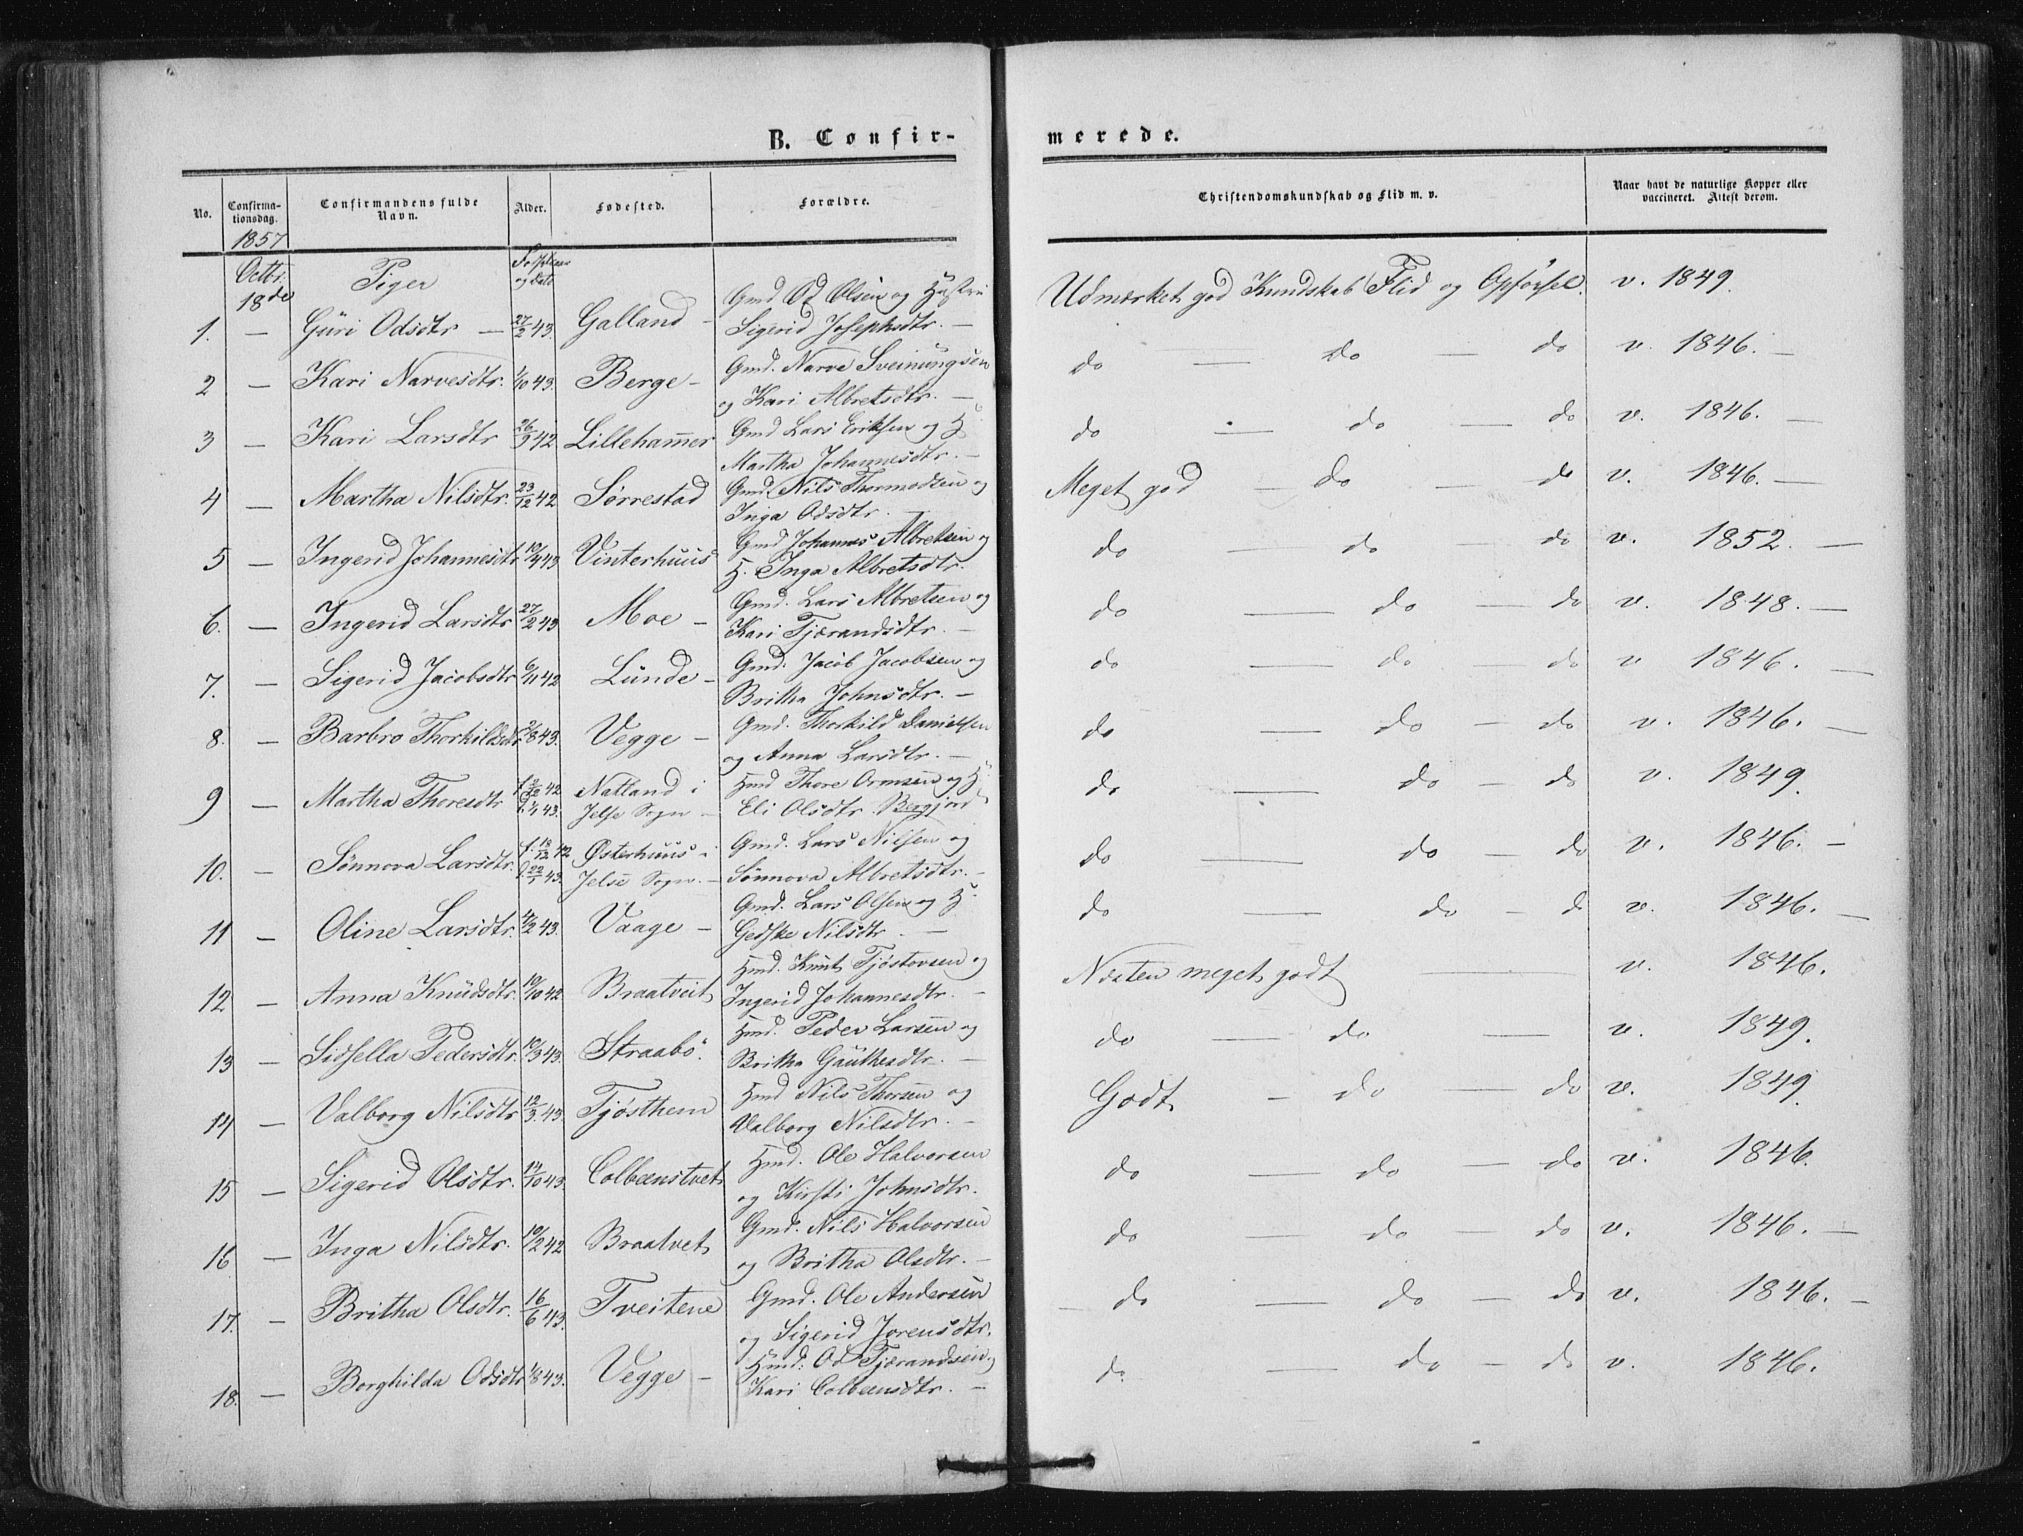 B. Confir-
merede.
No.
Confirma-
tionsdag.
Confirmandens fulde
Navn.
Alder.
Fødested.
Forældre.
Christendomskundskab og Flid m. v.
Naar havt de naturlige Kopper eller
vaccineret. Attest derom.
1857
Octbr. 18de Piger og dato
1. — Guri Odsdtr — 27/2 43. Galland — Gmd Od Olsen og Hustru
Sigerid Josephsdtr. — Udmærket god Kundskab Flid og Opførsel. v. 1849.
2 — Kari Narvesdtr. 1/10 43. Berge — Gmd. Narve Sveinungsen
og Kari Albretsdtr. — do — do — do v. 1846. —
3 — Kari Larsdtr 26/9 42 Lillehammer Gmd Lars Eriksen og H.
Martha Johannesdtr. — do — do — do v. 1846. —
4 — Martha Nilsdtr. 23/12 42 Sørrestad Gmd Nils Thormodsen og
Inga Odsdtr. — Meget god — do — do v. 1846. —
5 — Ingerid Johannesdtr 10/4 43 Vinterhuus Gmd Johannes Albretsen og
H. Inga Albretsdtr. do — do — do v. 1852. —
6. — Ingerid Larsdtr 27/2 43 Moe — Gmd. Lars Albretsen og
Kari Tjærandsdtr. — do — do — do v. 1848. —
7. — Sigerid Jacobsdtr 6/11 42 Lunde — Gmd. Jacob Jacobsen og
Britha Johnsdtr. — do — do — do v 1846. —
8. — Barbro Thorkildsdtr 2/8 43. Vegge — Gmd. Thorkild Danielsen
og Anna Larsdtr. — do — do — do v. 1846. —
9 — Martha Thoresdtr 42 43. Natland i
Jelse Sogn — Hmd Thore Ormsen og H.
Eli Olsdtr. do — do — do v. 1849.
10. — Sønnova Larsdtr. f. 18/12 42 d. 22/1 43. Østerhuus i
Jelse Sogn. — Gmd. Lars Nilsen og
Sønnova Albretsdtr. — do — do — do v. 1846. —
11 — Oline Larsdtr. 4/2 43. Vaage — Gmd. Lars Olsen og H.
Gedske Nilsdtr. — do — do — d v. 1846. —
12 — Anna Knudsdtr. 10/10 42 Braatveit Hmd. Knut Tjøstovsen og
Ingerid Johannesdtr. — Næsten meget godt — v. 1846.
13 — Sidsella Pedersdtr. 10/3 43. Straabø. Hmd. Peder Larsen og
Britha Gauthesdtr. — do — do — v. 1849.
14 — Valborg Nilsdtr 12/3. 43. Tjøsthem Hmd Nils Thorsen og
Valborg Nilsdtr. — Godt — do — do v. 1849.
15 — Sigerid Olsdtr. 14/10 43. Colbenstvet Hmd. Ole Halvorsen
og Kirsti Johnsdtr. do — do — do v. 1846.
16 — Inga Nilsdtr. 10/2 42 Braatvet Gmd. Nils Halvorsen
og Britha Olsdtr. — do — do — do v. 1846. —
17. — Britha Olsdtr. 16/6 43. Tveitene Gmd. Ole Andersen
og Sigerid Jorensdtr. — do — do — do v. 1846. —
18. — Borghilda Odsdtr 1/8 43. Vegge — Hmd. Od Tjærandsen og
Kari Colbensdtr. — do — do — do v. 1846.